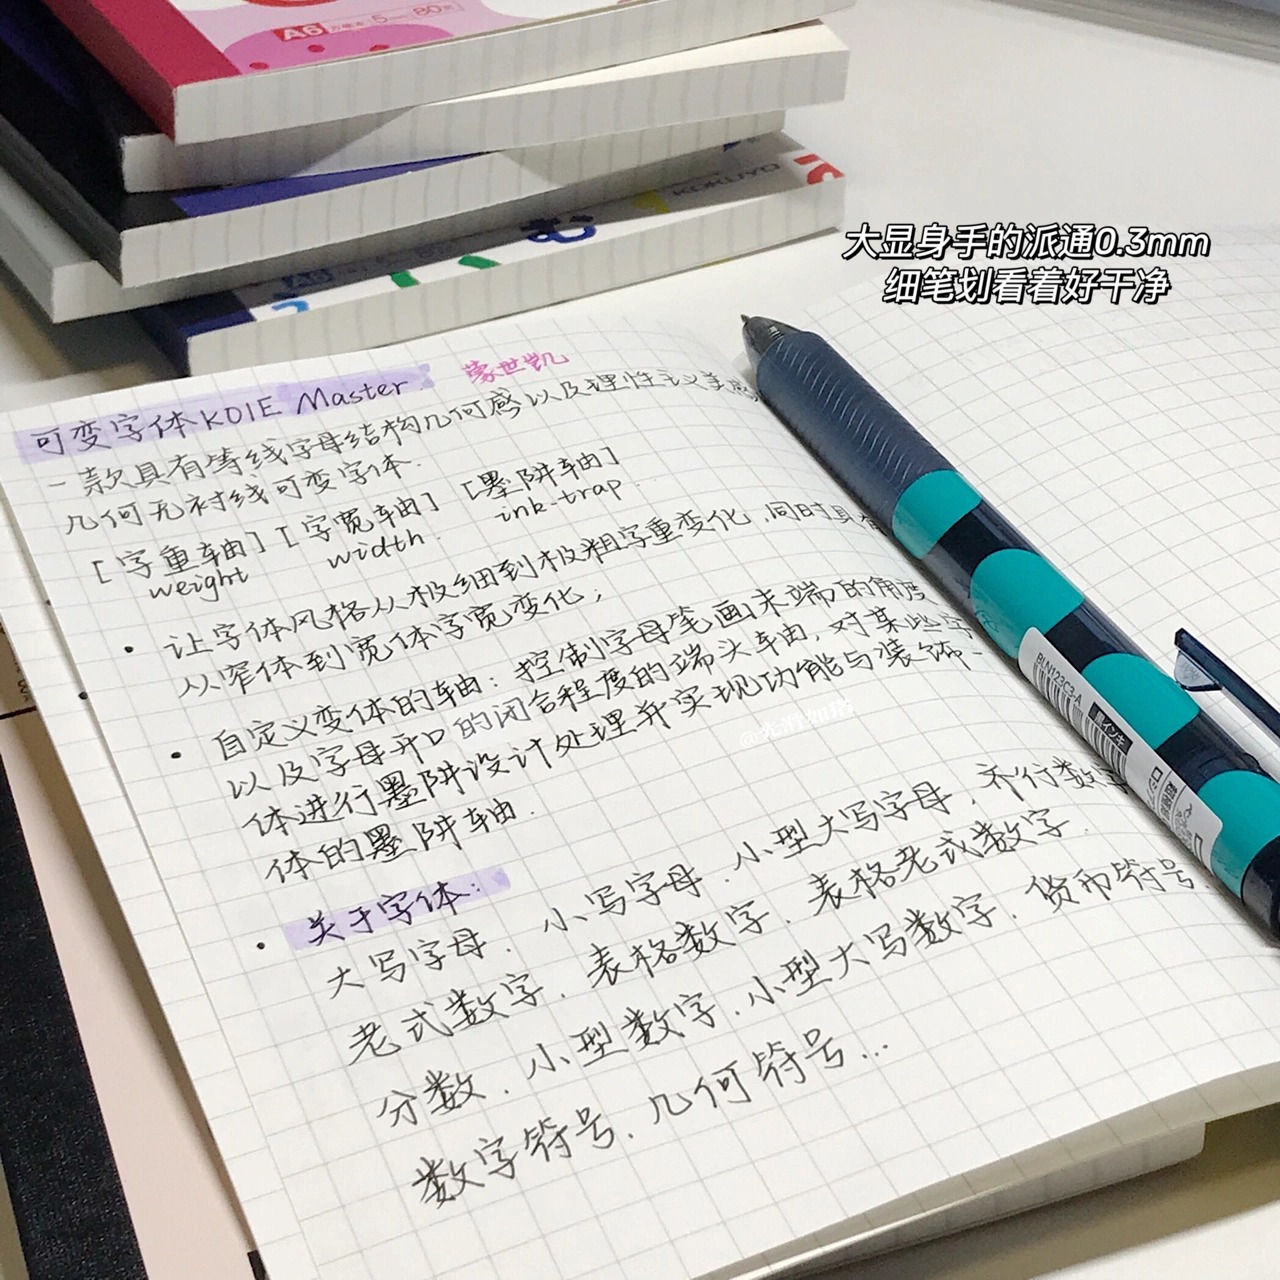 A6 5mm 80
KOKUYO
A6
大显身手的派通0.3mm
细笔划看着好干净
可变字体KOIE Master 蒙世凯
一款具有等线字母结构几何感以及理性主义美感
几何无衬线可变字体.
[字重轴] [字宽轴] [墨阱轴]
weight width. ink-trap.
• 让字体风格从极细到极粗字重变化,同时具有
从窄体到宽体字宽变化;
• 自定义变体的轴:控制字母笔画末端的角度
以及字母开口的闭合程度的端头轴,对某些字
体进行墨阱设计处理并实现功能与装饰一
体的墨阱轴.
• 关于字体:
大写字母、小写字母、小型大写字母、齐行数字
老式数字、表格数字、表格老式数字.
分数、小型数字、小型大写数字、货币符号.
数字符号、几何符号...
@光滑如猪
BLN123C3-A
黒インキ